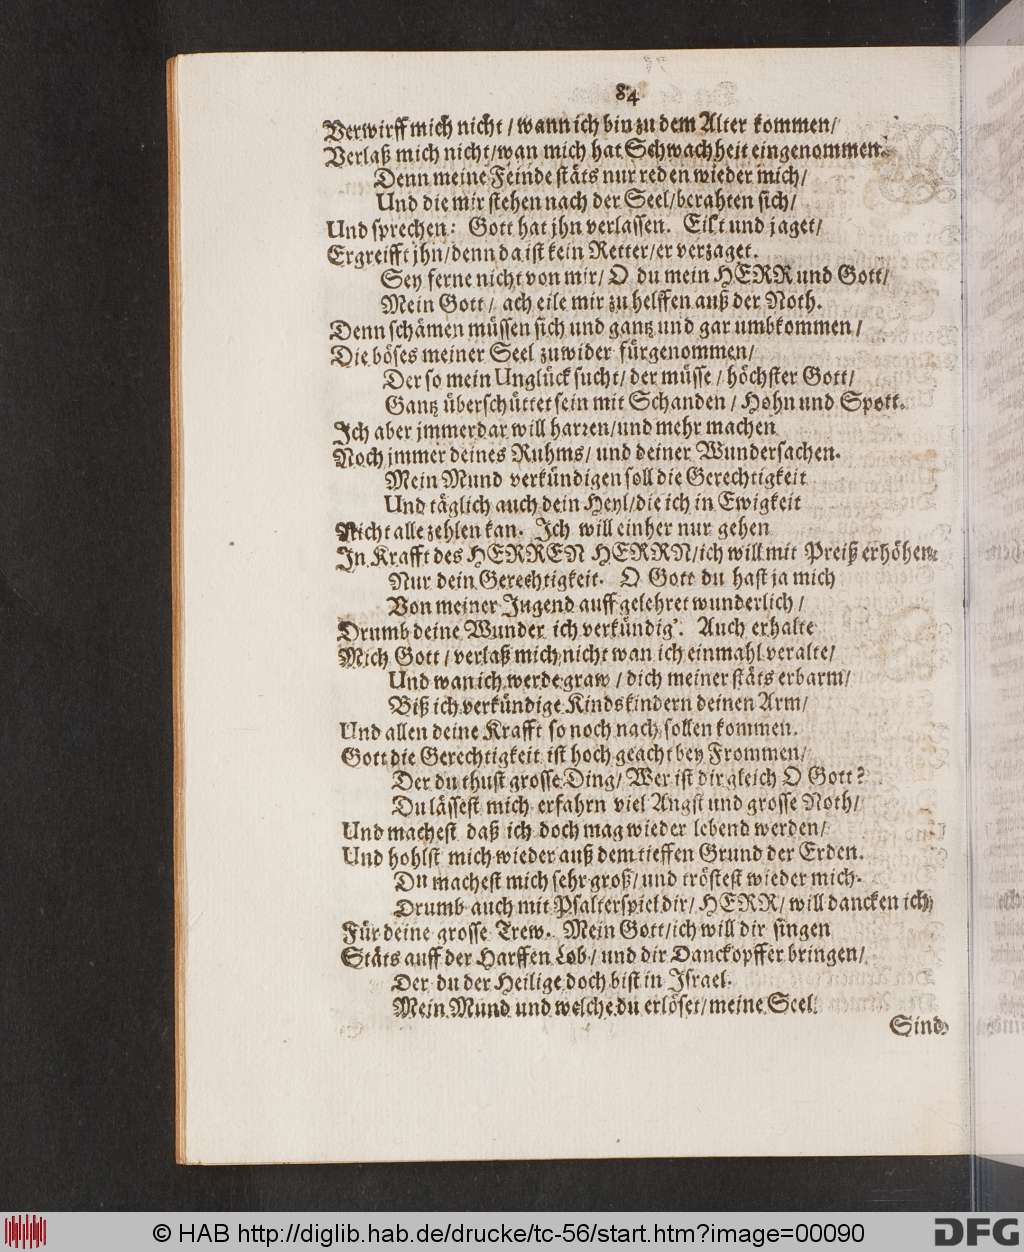 84
Verwirff mich nicht / wann ich bin zu dem Alter kommen /
Verlaß mich nicht / wan mich hat Schwachheit eingenommen.
Denn meine Feinde stäts nur reden wieder mich /
Und die mir stehen nach der Seel / berahten sich /
Und sprechen: Gott hat jhn verlassen. Eilt und jaget /
Ergreifft jhn / denn da ist kein Retter / er verzaget.
Sey ferne nicht von mir / O du mein HERR und Gott /
Mein Gott / ach eile mir zu helffen auß der Noth.
Denn schämen müssen sich und gantz und gar umbkommen /
Die böses meiner Seel zuwider fürgenommen /
Der so mein Unglück sucht / der müsse / höchster Gott /
Gantz überschüttet sein mit Schanden / Hohn und Spott.
Ich aber jmmerdar will harren / und mehr machen
Noch jmmer deines Ruhms / und deiner Wundersachen.
Mein Mund verkündigen soll die Gerechtigkeit
Und täglich auch dein Heyl / die ich in Ewigkeit
Nicht alle zehlen kan. Ich will einher nur gehen
In Krafft des HERREN HERRN / ich will mit Preiß erhöhen
Nur dein Gerechtigkeit. O Gott du hast ja mich
Von meiner Jugend auff gelehret wunderlich /
Drumb deine Wunder ich verkündig'. Auch erhalte
Mich Gott / verlaß mich nicht wan ich einmahl veralte /
Und wan ich werde graw / dich meiner stäts erbarm /
Biß ich verkündige Kindskindern deinen Arm /
Und allen deine Krafft so noch nach sollen kommen.
Gott die Gerechtigkeit ist hoch geacht bey Frommen /
Der du thust grosse Ding / Wer ist dir gleich O Gott?
Du lässest mich erfahrn viel Angst und grosse Noth /
Und machest daß ich doch mag wieder lebend werden /
Und hohlst mich wieder auß dem tieffen Grund der Erden.
Du machest mich sehr groß / und tröstest wieder mich.
Drumb auch mit Psalterspiel dir / HERR / will dancken ich /
Für deine grosse Trew. Mein Gott / ich will dir singen
Stäts auff der Harffen Lob / und dir Danckopffer bringen /
Der du der Heilige doch bist in Israel.
Mein Mund und welche du erlöset / meine Seel
Sind
© HAB http://diglib.hab.de/drucke/tc-56/start.htm?image=00090
DFG